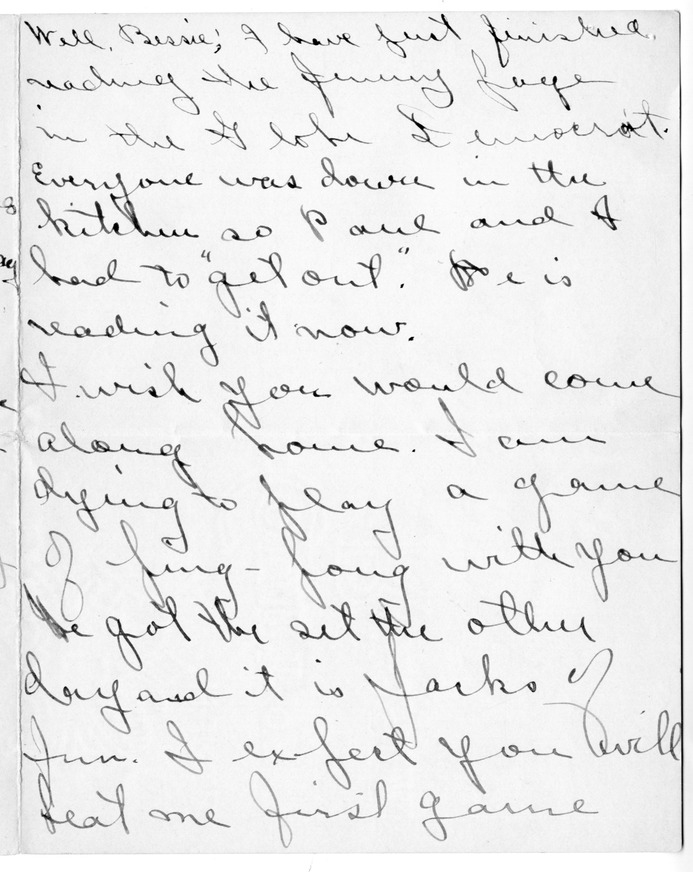 Well, Bessie, I have just finished
reading the funny page
in the Globe Democrat.
Everyone was down in the
kitchen so Paul and I
had to "get out." He is
reading it now.
I wish you would come
along home. I am
dying to play a game
of ping-pong with you
We got the set the other
day and it is packs of
fun. I expect you will
beat me first game